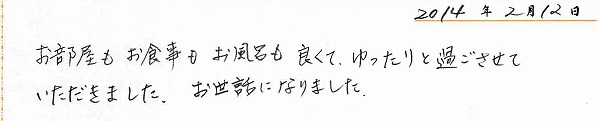 2014 年 2月12日
お部屋も お食事も お風呂も 良くて、ゆったりと過ごさせて
いただきました。 お世話になりました。